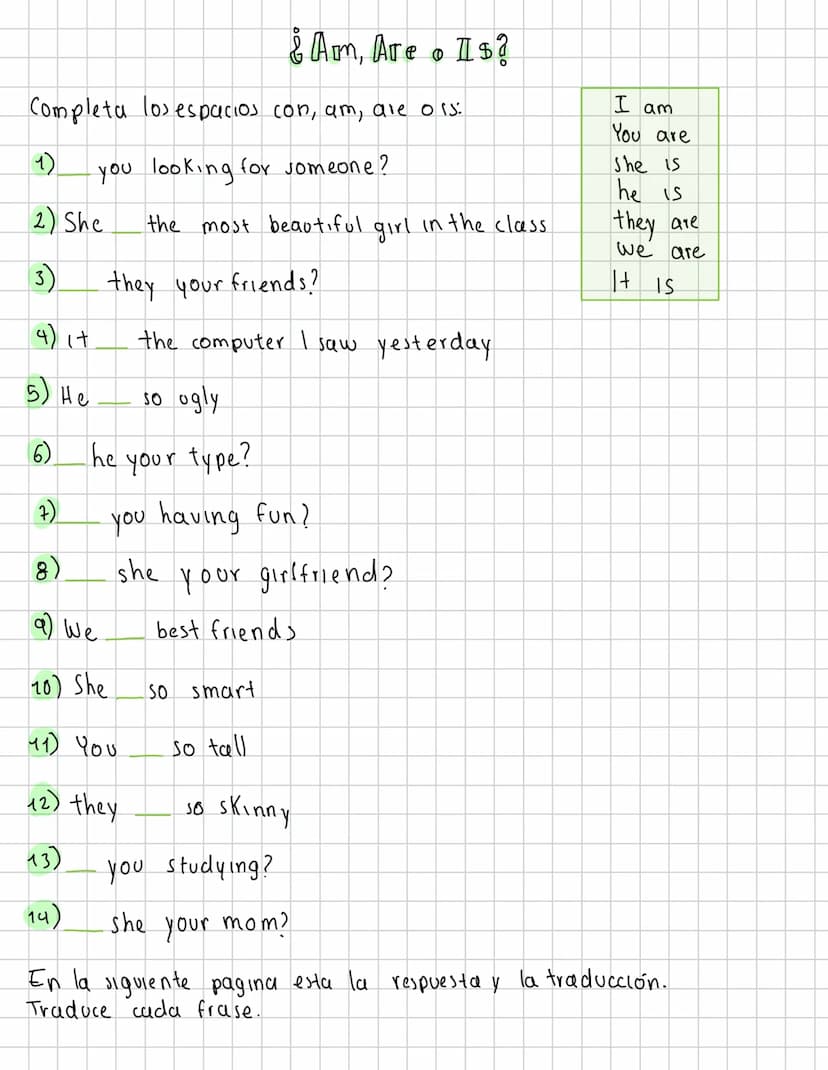 ¿Am, Are o Is?
Completa los espacios con, am, are o is:
1) __ you looking for someone?
2) She __ the most beautiful girl in the class
3) __ they your friends?
4) it __ the computer I saw yesterday
5) He __ so ugly
6) __ he your type?
7) __ you having fun?
8) __ she your girlfriend?
9) We __ best friends
10) She __ so smart
11) You __ so tall
12) they __ so skinny
13) __ you studying?
14) __ she your mom?
En la siguiente pagina esta la respuesta y la traducción.
Traduce cada frase.
I am
You are
she is
he is
they are
we are
It is